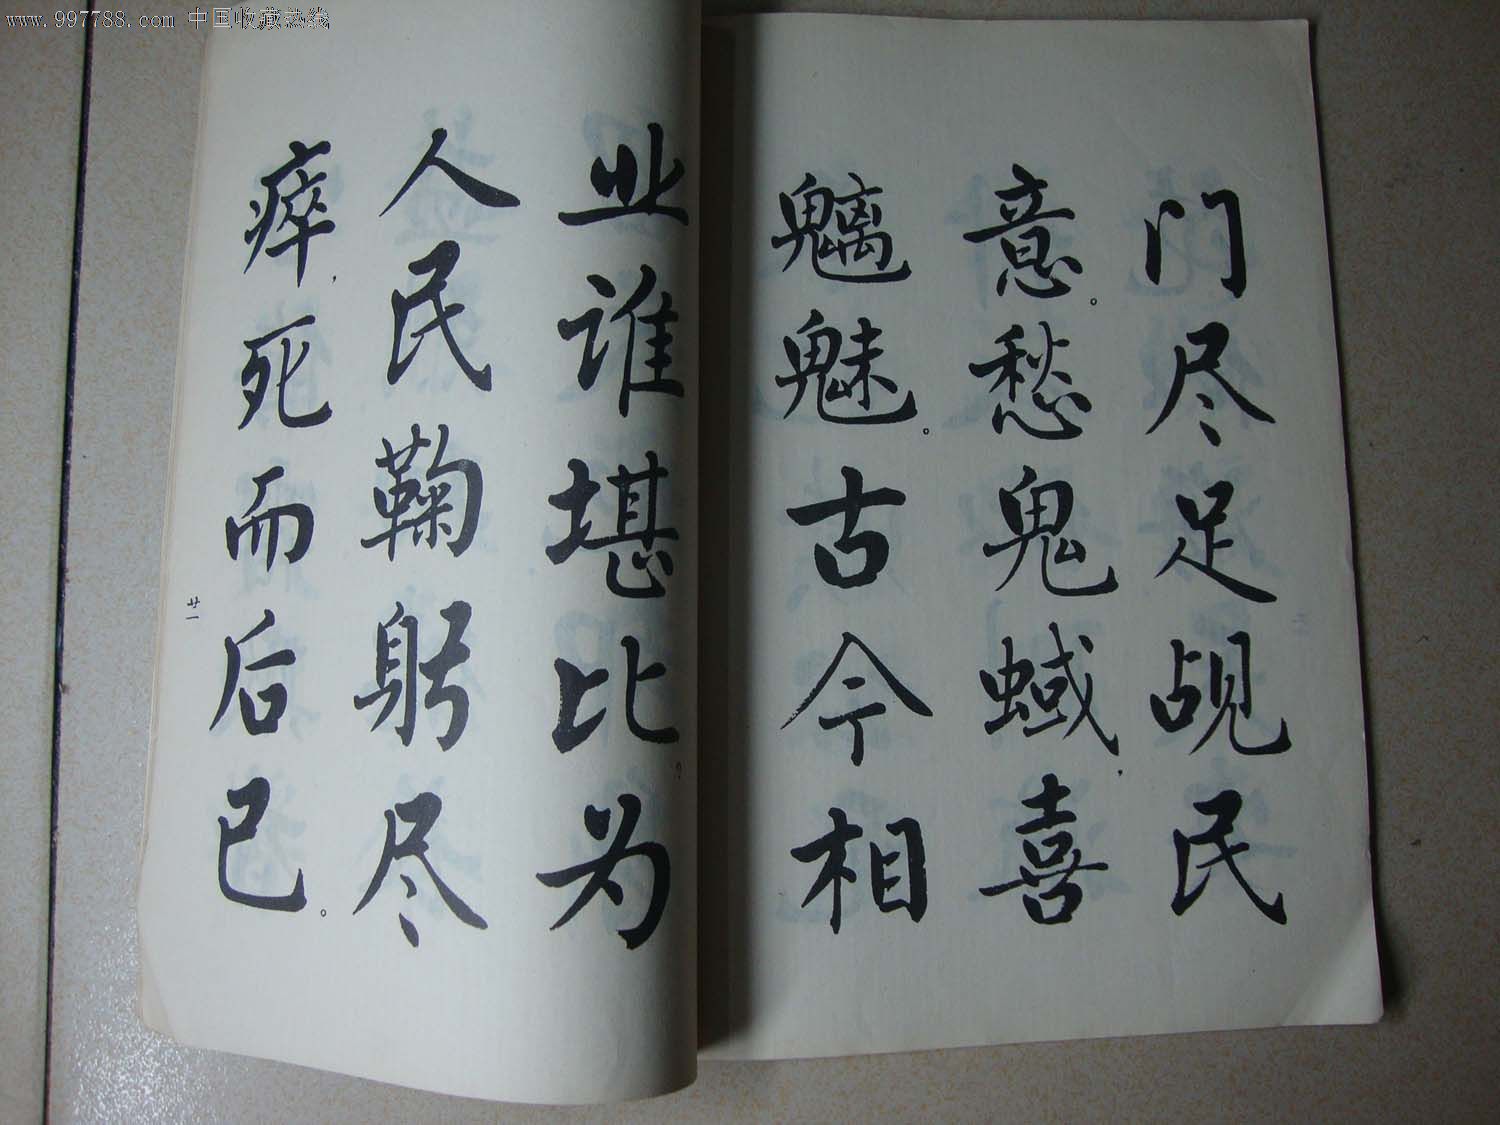 www.997788.com 中国收藏热线
门尽足觇民
意。愁鬼蜮，喜
魑魅。古今相
业谁堪比？为
人民鞠躬尽
瘁，死而后已。
廿一